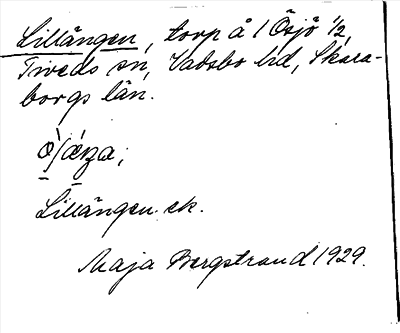 Lillängen, torp å 1 Ösjö 1/2,
Tiveds sn, Vadsbo hd, Skara-
borgs län.
Lillängen ek.
Maja Bergstrand 1929.